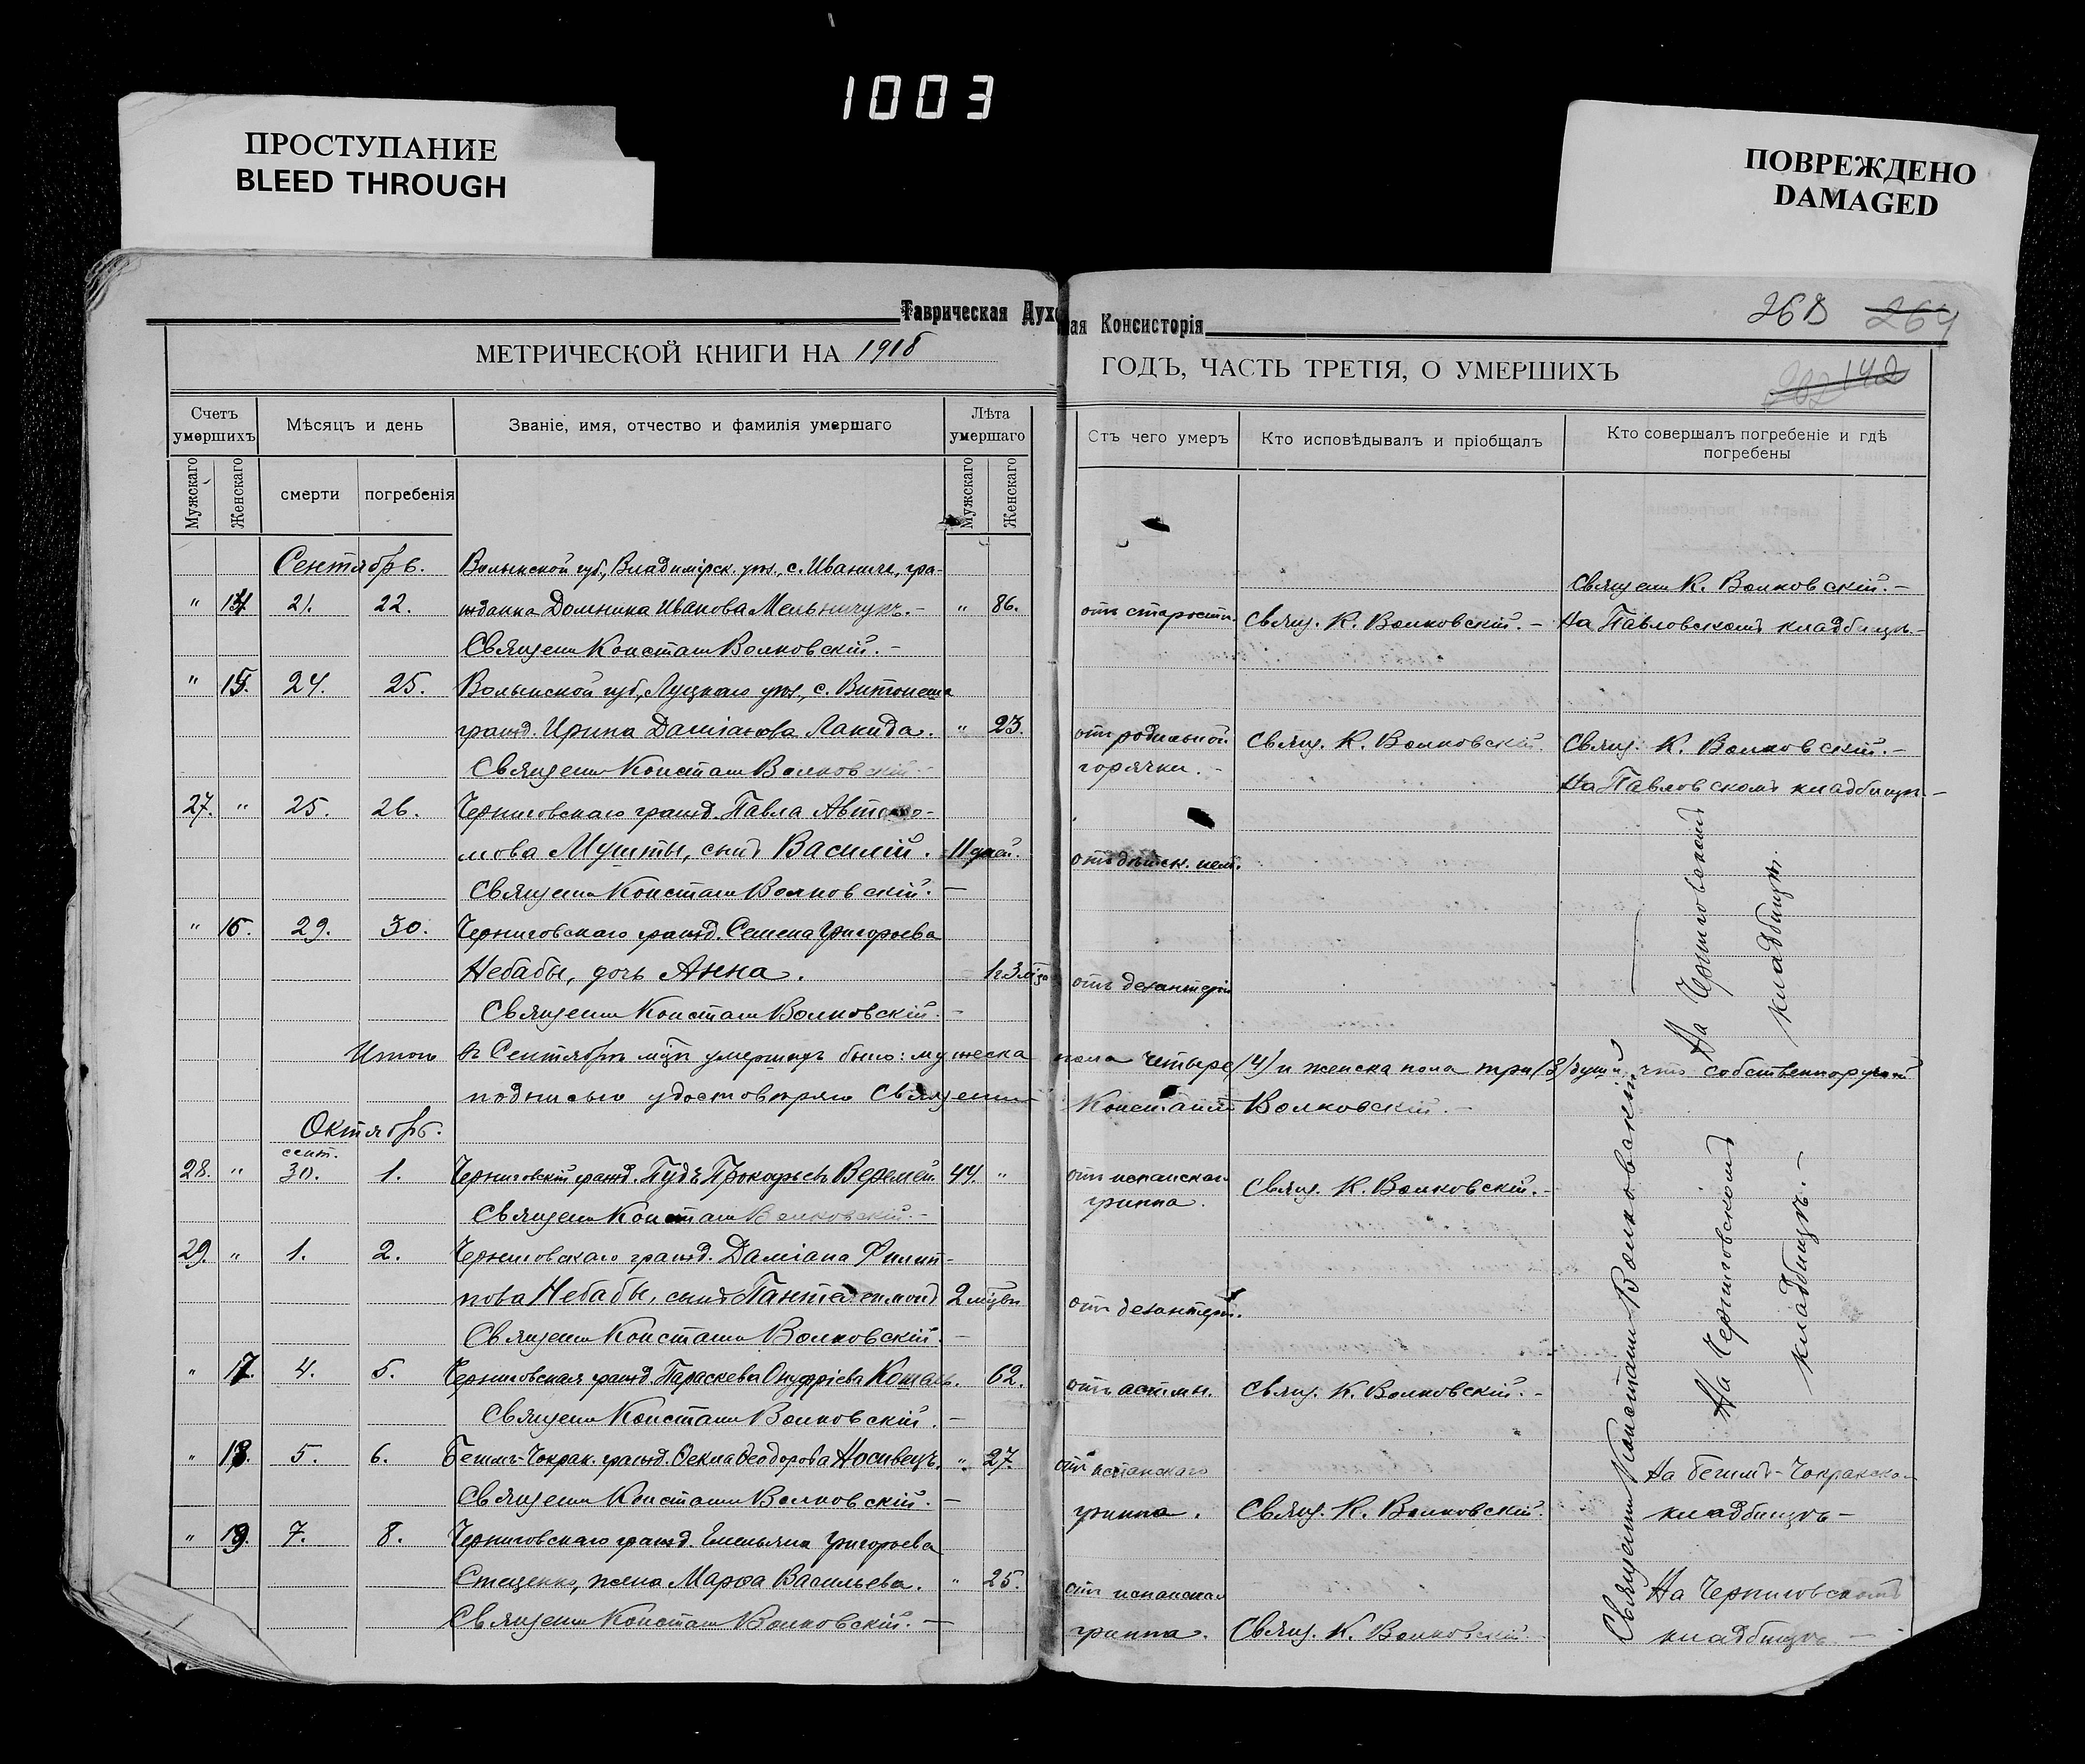 1003
ПРОСТУПАНИЕ
BLEED THROUGH
ПОВРЕЖДЕНО
DAMAGED
Таврическая Духо
ная Консисторія
268 264
МЕТРИЧЕСКОЙ КНИГИ НА 1918
ГОДЪ, ЧАСТЬ ТРЕТІЯ, О УМЕРШИХЪ
142
Счетъ умершихъ
Мѣсяцъ и день
Званіе, имя, отчество и фамилія умершаго
Лѣта умершаго
Отъ чего умеръ
Кто исповѣдывалъ и пріобщалъ
Кто совершалъ погребеніе и гдѣ погребены
Мужскаго
Женскаго
смерти
погребенія
Мужскаго
Женскаго
Сентябрь.
Волынской губ., Владимірск. уѣз., с. Иваничи, гра-
Священ К. Волковскій.-
" 14. 21. 22. жданка Домника Иванова Мельничукъ.- " 86. отъ старости. Свящ. К. Волковскій.- На Павловскомъ кладбищѣ.-
Священ Констан Волковскій.-
" 15. 24. 25. Волынской губ., Луцкаго уѣз., с.
гражд. Ирина Даміанова Лакида. " 23. отъ родильной Свящ. К. Волковскій. Свящ. К. Волковскій.-
Священ Констан Волковскій.- горячки.-
На Павловскомъ кладбищѣ.-
27. " 25. 26. Черниговскаго гражд. Павла Автоно-
мова Мушты, сынъ Василій. 11 дней. отъ дѣтск.
Священ Констан Волковскій.-
" 16. 29. 30. Черниговскаго гражд. Семена Григорьева
Небабы, дочь Анна. отъ дезентеріи
Священ Констан Волковскій.-
На Черниговскомъ
кладбищѣ.
Итого въ Сентябрѣ м-цѣ умершихъ было: мужеска пола четыре /4/ и женска пола три /3/ души, что собственноручной
подписью удостовѣряю Священ Констант Волковскій.-
Октябрь.
сент.
28. " 30. 1. Черниговскій гражд. Пудъ Прокофьевъ Веремей. 44. " отъ испанскаго Свящ. К. Волковскій.-
гриппа.
Священ Констан Волковскій.-
29. " 1. 2. Черниговскаго гражд. Даміана Филип-
пова Небабы, сынъ Пантелеимонъ 2 отъ дезентеріи.
Священ Констан Волковскій.-
" 17. 4. 5. Черниговская гражд. Параскева Онуфріева Кошаль. 62. отъ астмы. Свящ. К. Волковскій.-
Священ Констан Волковскій.-
На Черниговскомъ
кладбищѣ.-
Священ Констант Волковскій
" 18. 5. 6. гражд. Ѳекла Ѳеодорова Носивецъ. " 27. отъ испанскаго
На
Священ Констан Волковскій.- гриппа. Свящ. К. Волковскій. кладбищѣ-
" 19. 7. 8. Черниговскаго гражд. Емельяна Григорьева
Стеценко, жена Марѳа Васильева. " 25. отъ испанскаго
На Черниговскомъ
Священ Констан Волковскій.- гриппа. Свящ. К. Волковскій.- кладбищѣ.-